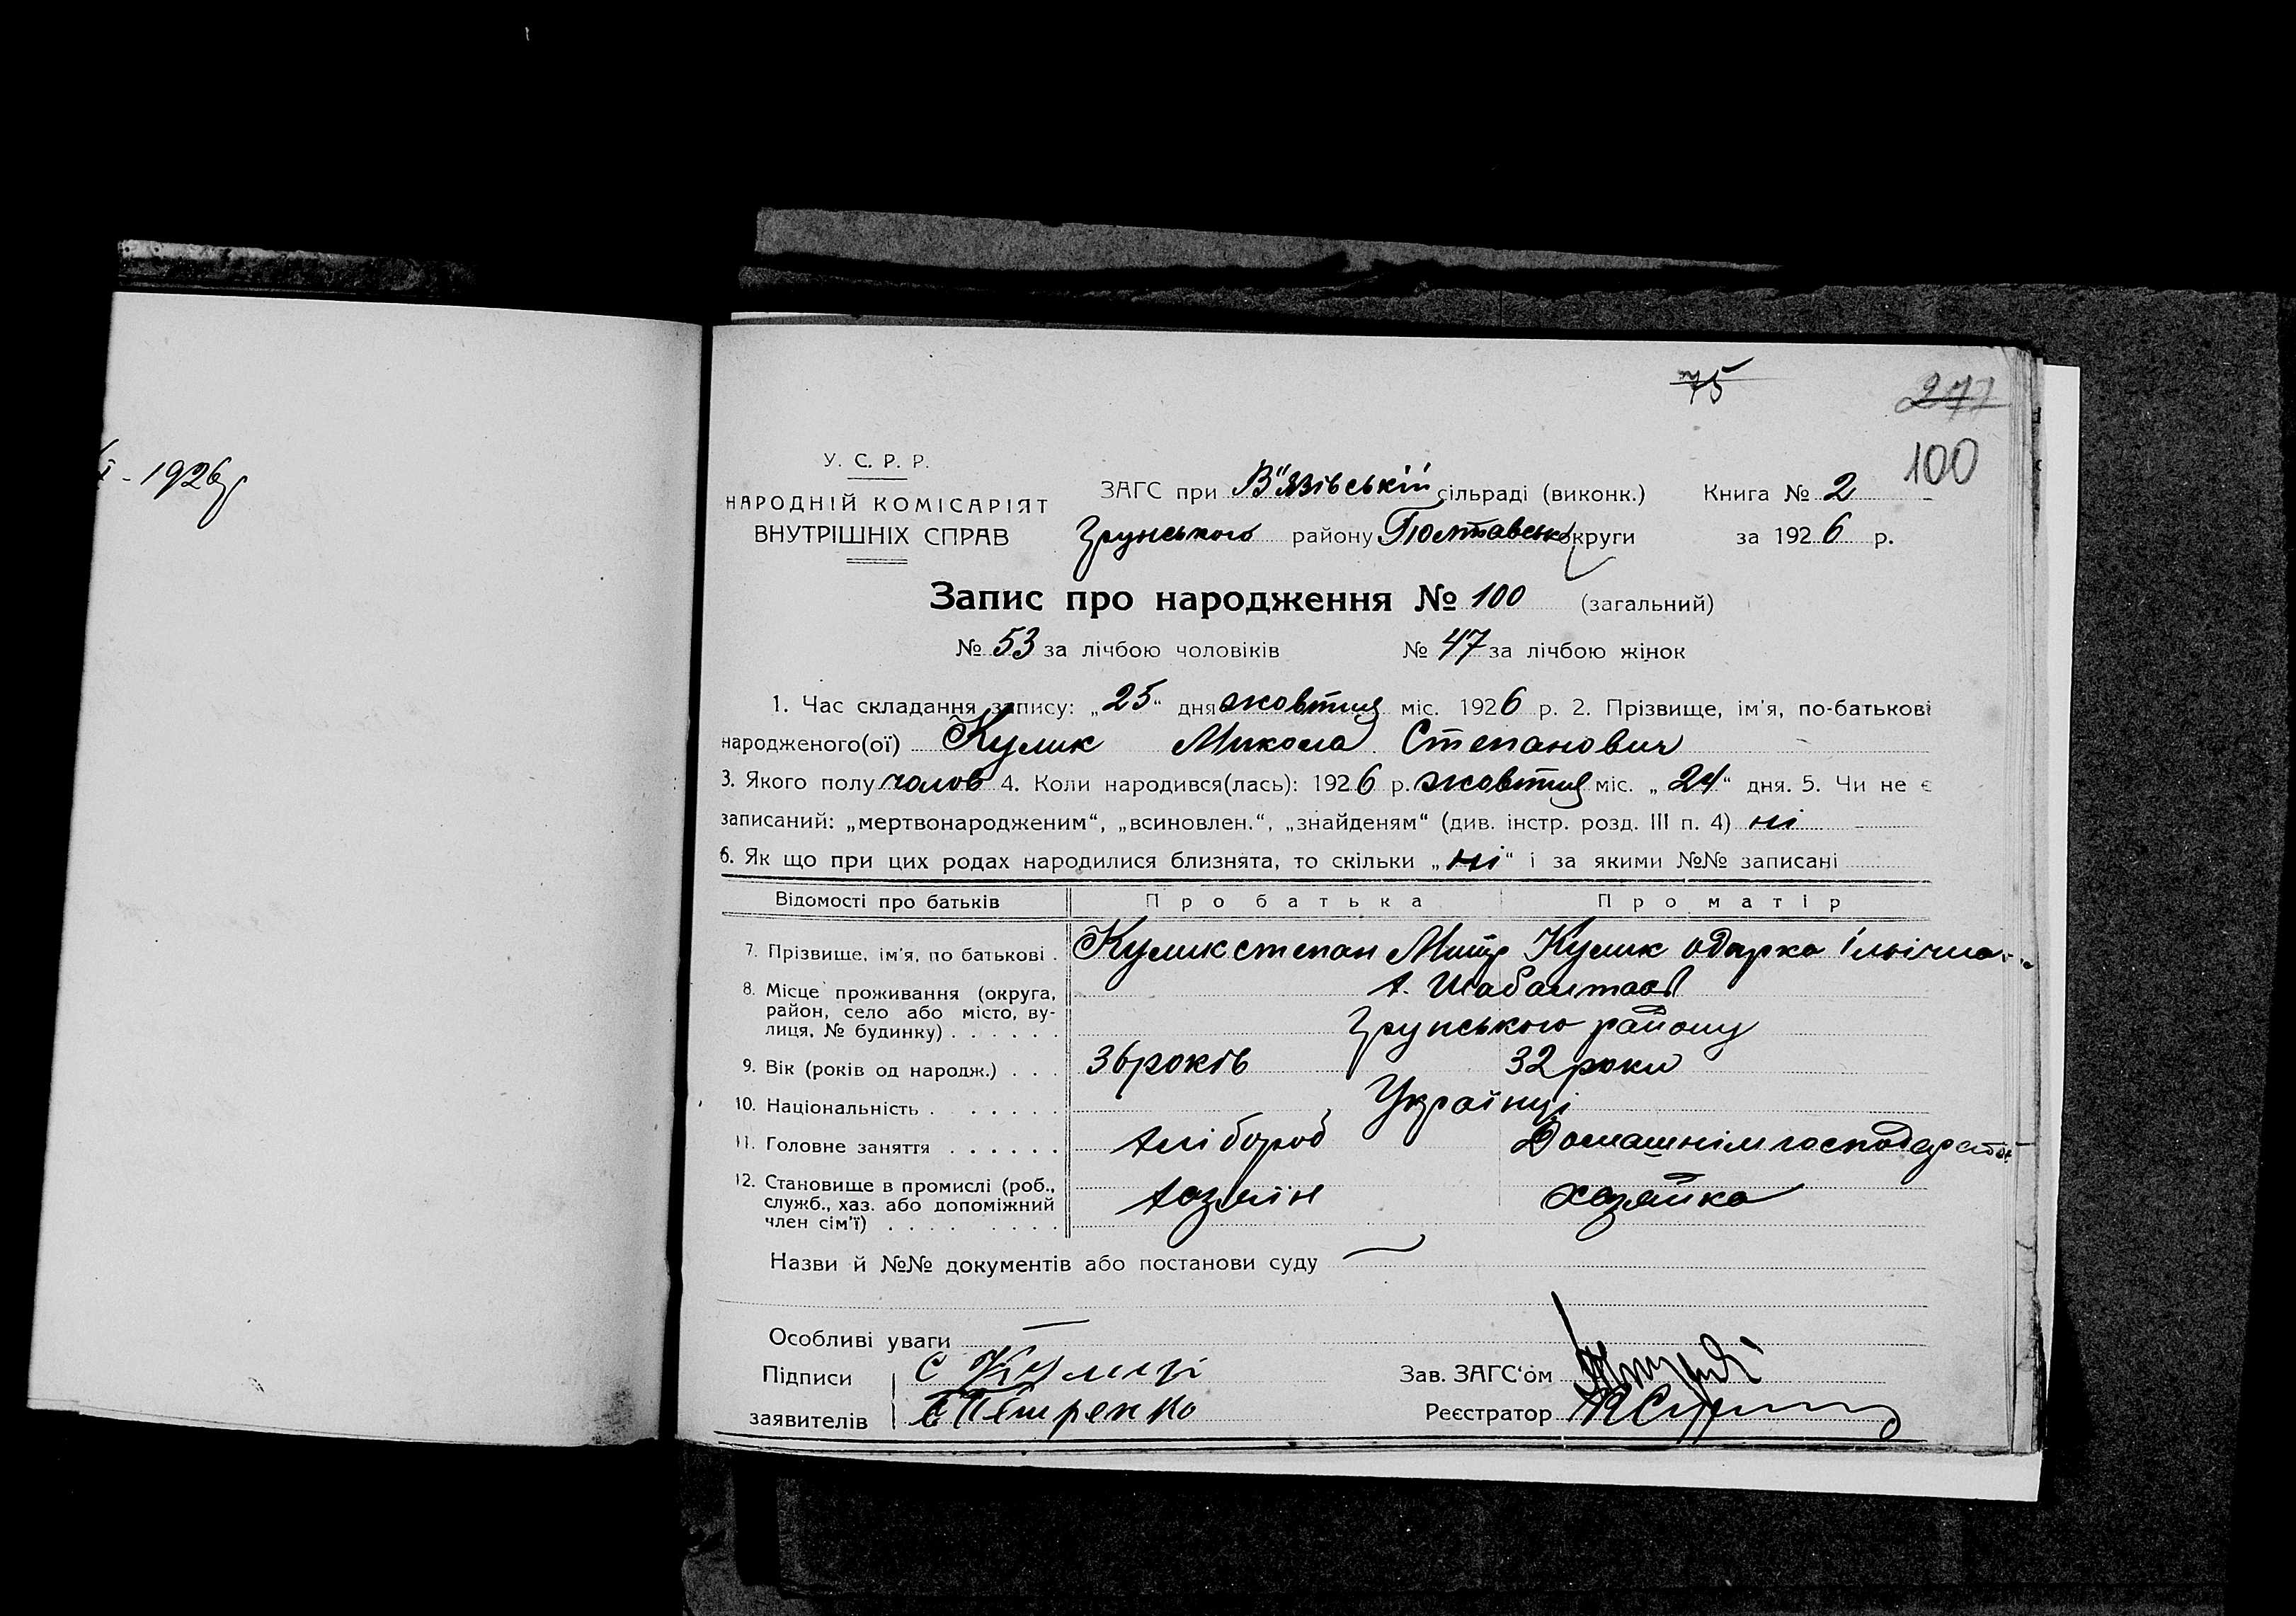 - 1926 р
75
277
100
У. С. Р. Р.
НАРОДНІЙ КОМІСАРІЯТ
ВНУТРІШНІХ СПРАВ
ЗАГС при В'язівській сільраді (виконк.) Книга № 2
Грунського району Полтавськ округи за 1926 р.
Запис про народження № 100 (загальний)
№ 53 за лічбою чоловіків № 47 за лічбою жінок
1. Час складання запису: „25“ дня жовтня міс. 1926 р. 2. Прізвище, ім'я, по-батькові
народженого(ої) Кулик Микола Степанович
3. Якого полу чолов 4. Коли народився(лась): 1926 р. жовтня міс. „24“ дня. 5. Чи не є
записаний: „мертвонародженим“, „всиновлен.“, „знайденям“ (див. інстр. розд. III п. 4) ні
6. Як що при цих родах народилися близнята, то скільки „ні“ і за якими №№ записані
Відомості про батьків Про батька Про матір
7. Прізвище, ім'я, по батькові . Кулик степан Митр Кулик одарка Ільїчна
8. Місце проживання (округа,
район, село або місто, ву-
лиця, № будинку) . . . . . .
х.
Грунського району
9. Вік (років од народж.) . . . 36 років 32 роки
10. Національність . . . . . . . Українці
11. Головне заняття . . . . . . хлібороб Домашнім
12. Становище в промислі (роб.,
служб., хаз. або допоміжний
член сім'ї) . . . . . . . . .
хазяїн хазяйка
Назви й №№ документів або постанови суду —
Особливі уваги —
Підписи С Кулик Зав. ЗАГС'ом
заявителів Є Петренко Реєстратор